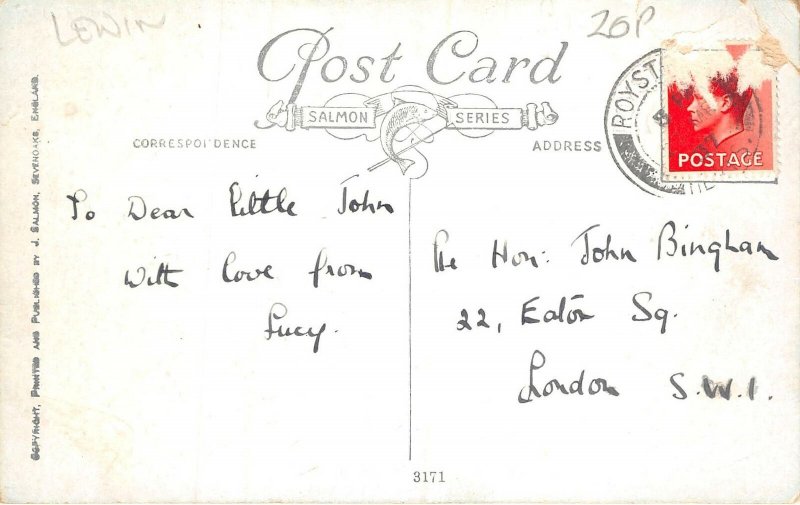 LEWIN
20P
Post Card
SALMON SERIES
CORRESPONDENCE
ADDRESS
ROYST
POSTAGE
To Dear Little John
with love from
Lucy.
The Hon: John Bingham
22, Eaton Sq.
London S.W.1.
COPYRIGHT, PRINTED AND PUBLISHED BY J. SALMON, SEVENOAKS, ENGLAND.
3171